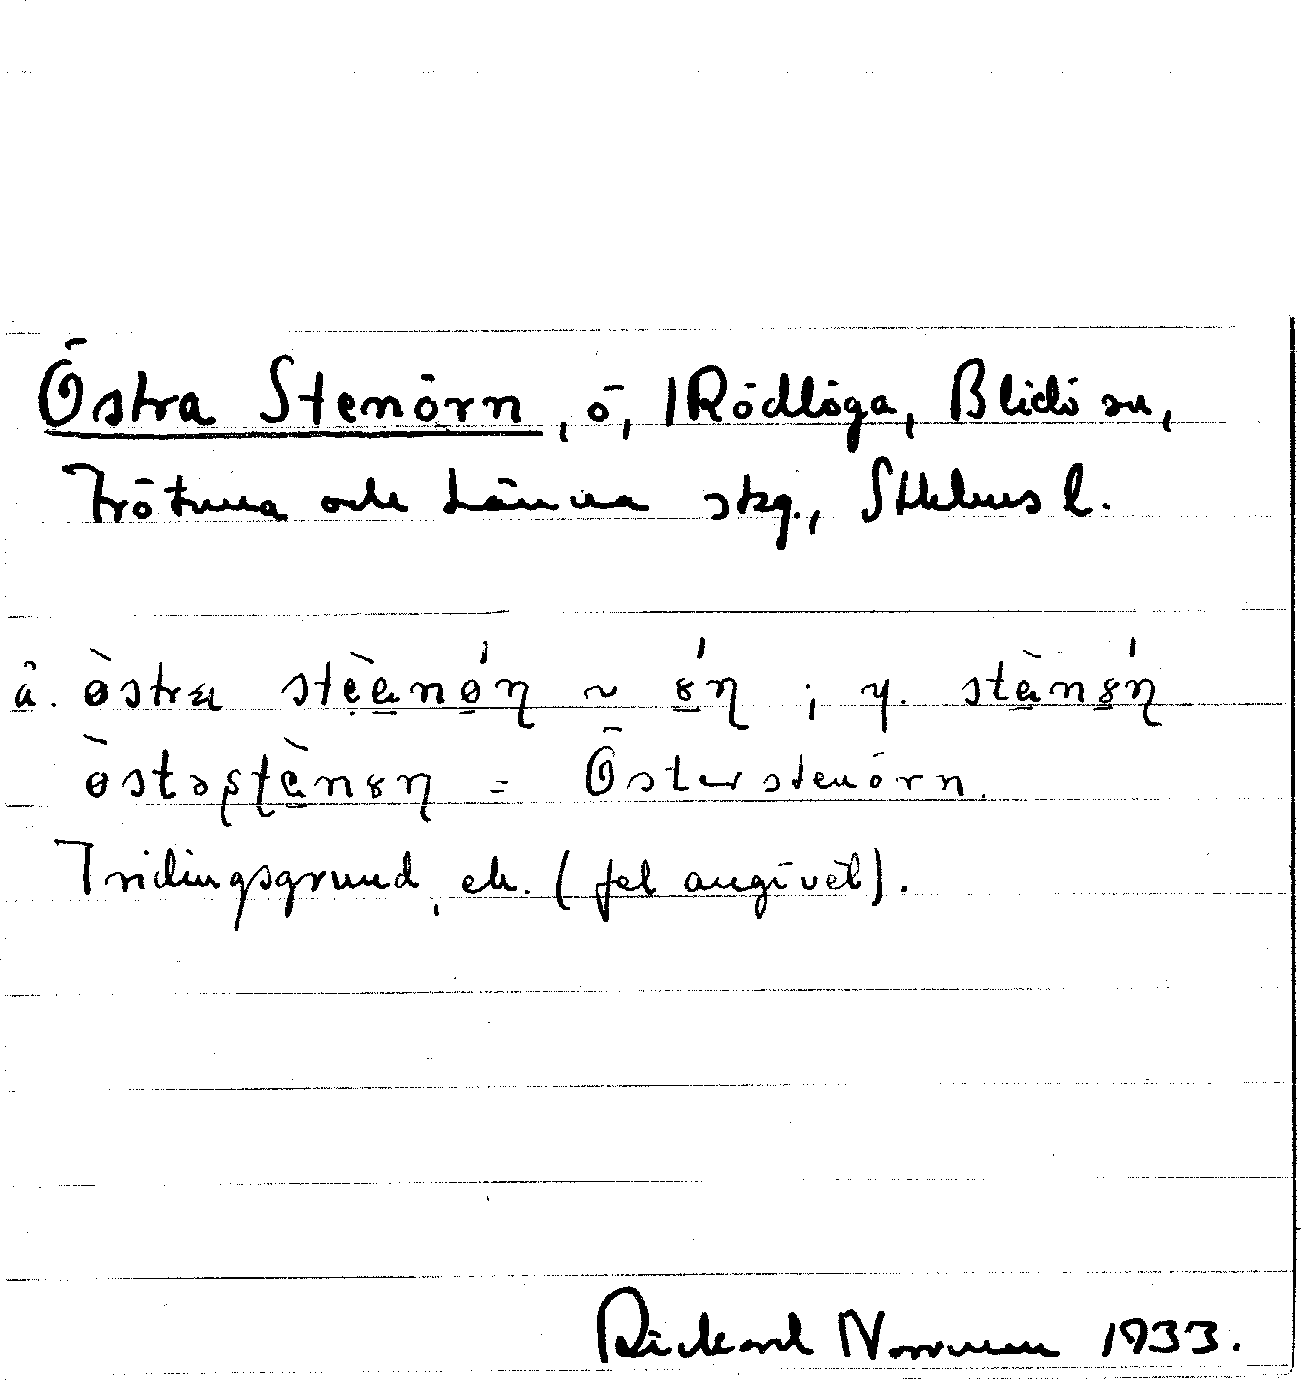 Östra Stenörn, ö, Rödlöga, Blidö sn,
Frötuna och Länna skg., Sthlms l.
å. ø̀stra stẹ̀ɑ̲nǿ̲η ~ 8̲́η ; y. stɑ̲̀n8̲́η
ø̀stəʂʈɑ̲̀n8η = Österstenörn.
Tridingsgrund, ek. (fel angivet).
Rickard Norrman 1933.